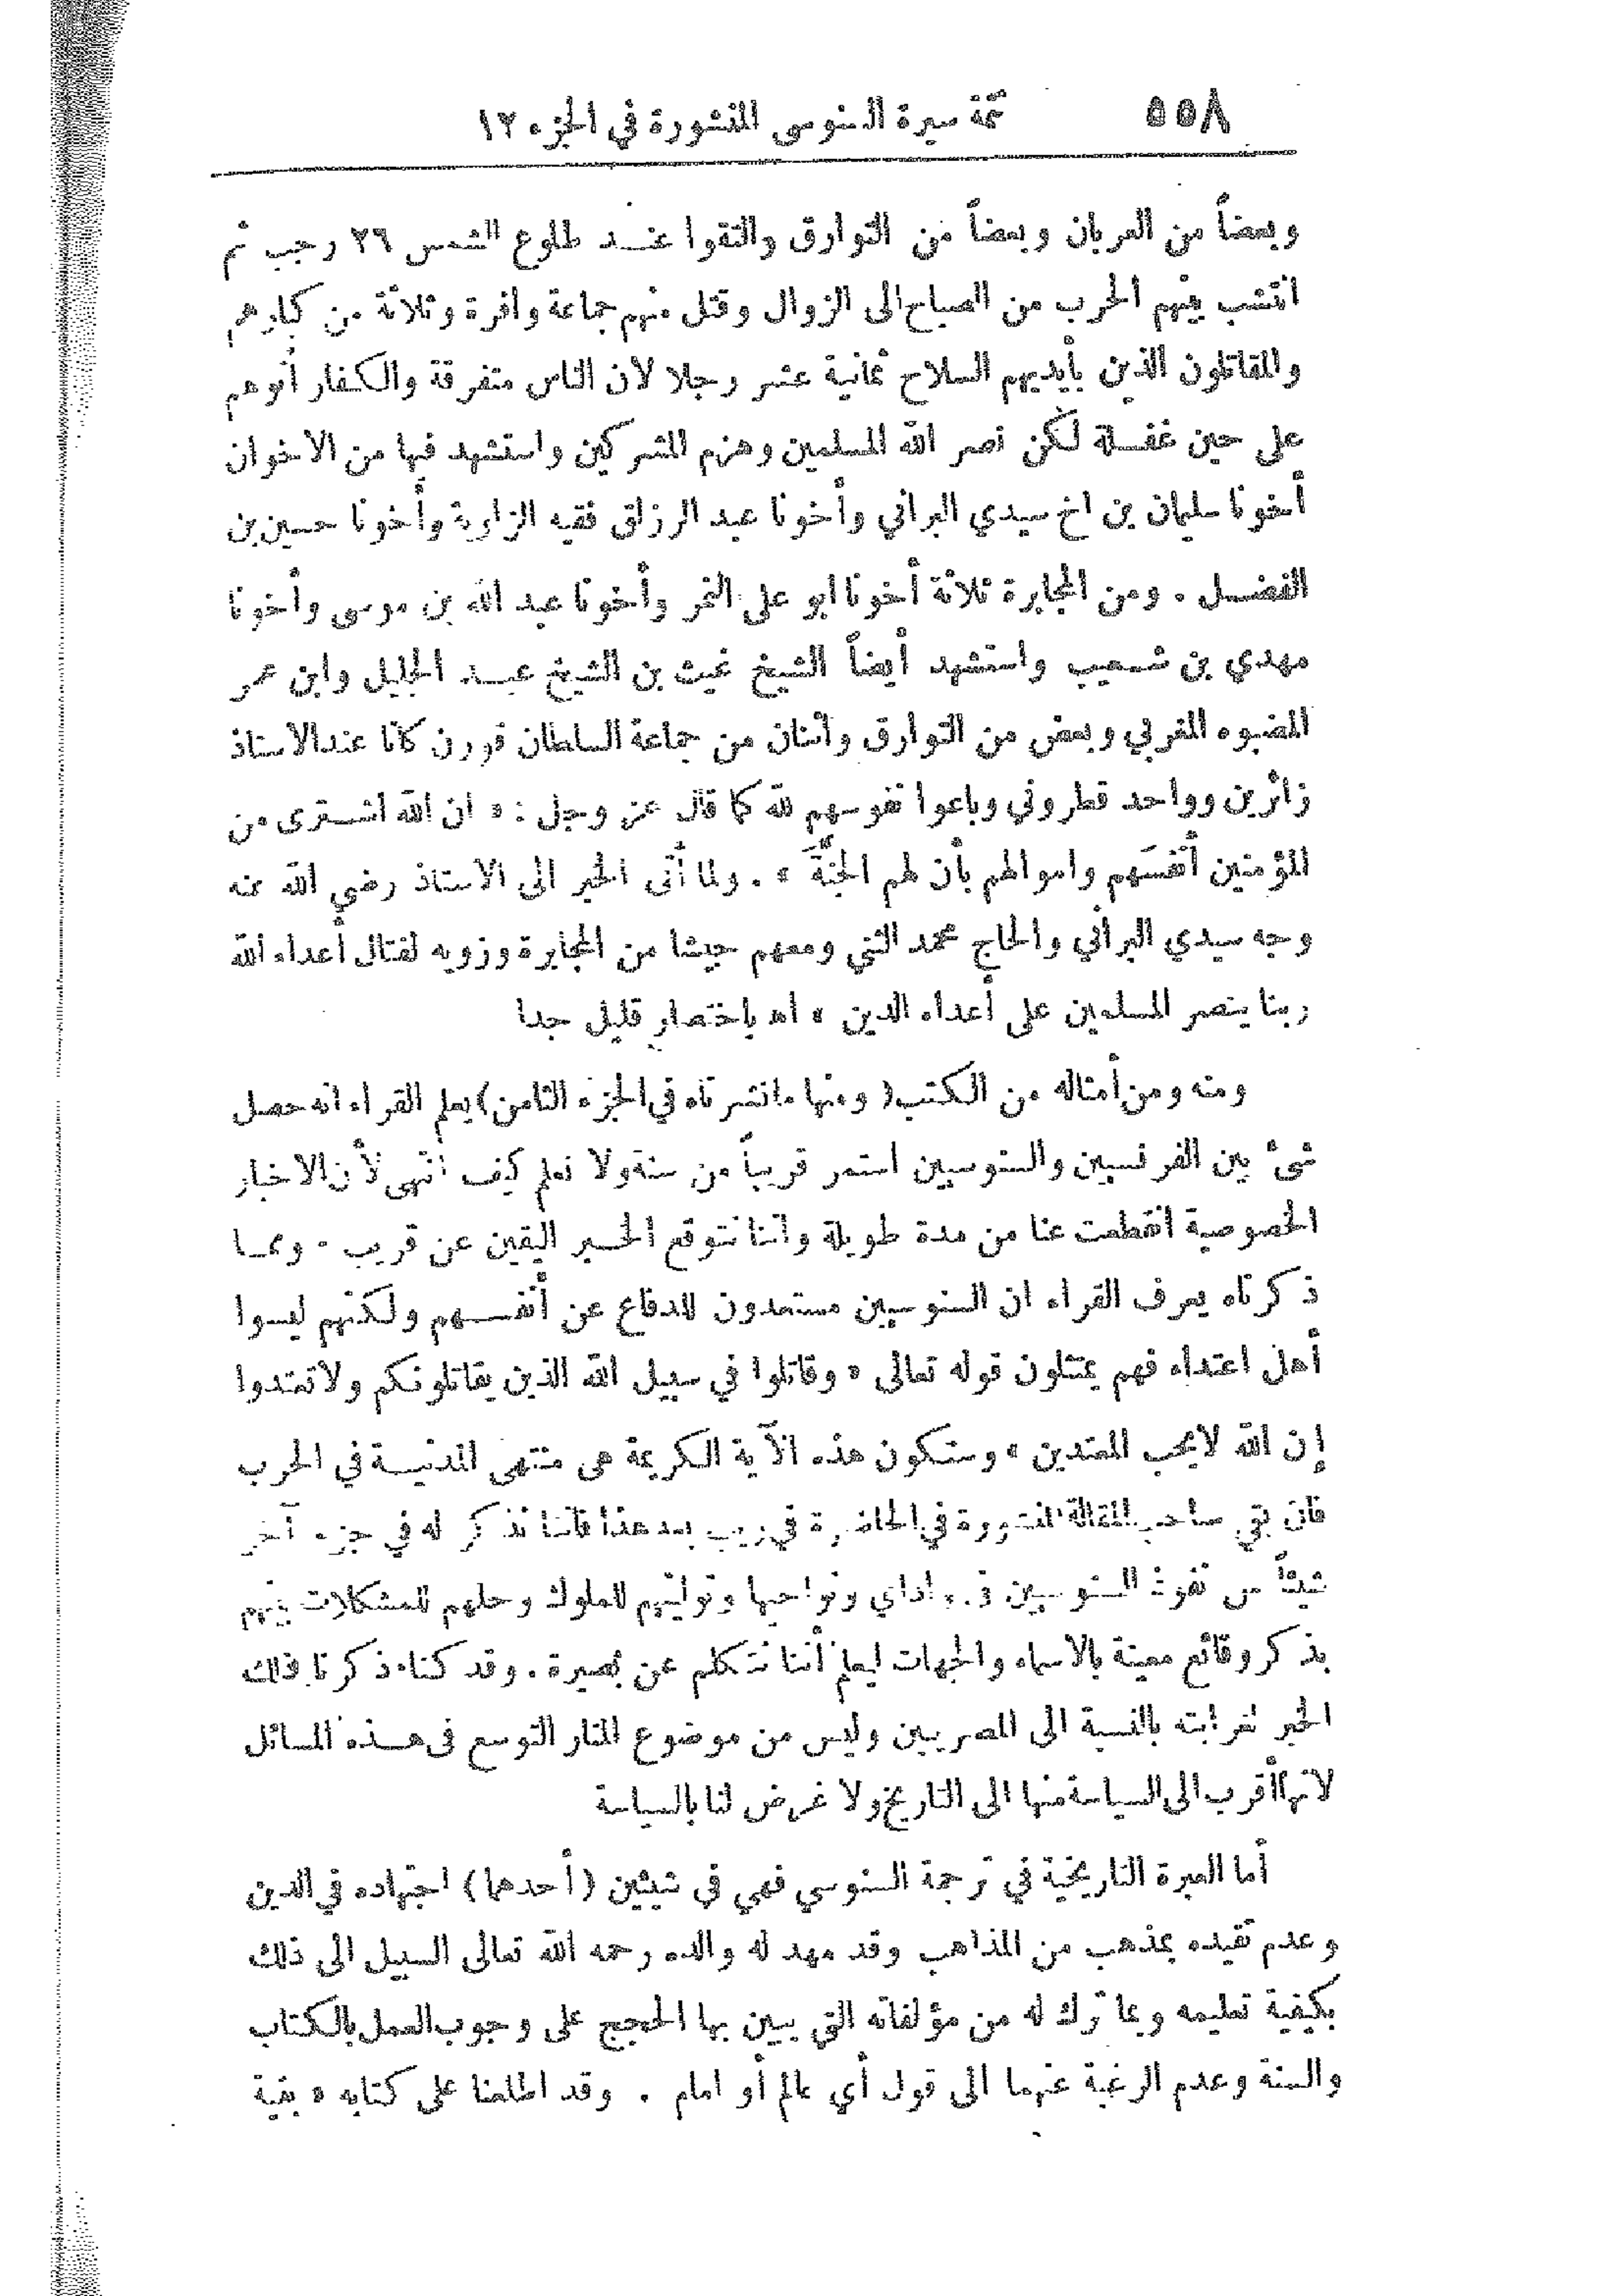 ٥٥٨
تتمة سيرة السنوسى المنشورة في الجزء ١٢
وبعضاً من العربان وبعضاً من التوارق والتقوا عنـد طلوع الشمس ٢٦ رجب ثم
انتشب بينهم الحرب من الصباح الى الزوال وقتل منهم جماعة وافرة وثلاثة من كبارهم
والمقاتلون الذين بأيديهم السلاح ثمانية عشر رجلا لان الناس متفرقة والكفار أتوهم
على حين غفـلة لكن نصر الله المسلمين وهزم المشركين واستشهد فيها من الاخوان
أخونا سليمان بن اخ سيدي البراني وأخونا عبد الرزاق فقيه الزاوية وأخونا حسين بن
الفضـل . ومن المجابرة ثلاثة أخونا ابو على التمر وأخونا عبد الله بن موسى وأخونا
مهدي بن شـعيب واستشهد أيضاً الشيخ غيث بن الشيخ عبـد الجليل وابن عمر
المضبوه المغربي وبعض من التوارق واثنان من جماعة السلطان قورن كانا عند الاستاذ
زائرين وواحد قطروني وباعوا نفوسهم لله كما قال عز وجل : « ان الله اشـترى من
المؤمنين أنفسَهم واموالهم بأن لهم الجنَّةَ » . ولما أتى الخبر الى الاستاذ رضي الله عنه
وجه سيدي البراني والحاج محمد الثني ومعهم جيشا من المجابرة وزويه لقتال أعداء الله
ربنا ينصر المسلمين على أعداء الدين » اهـ باختصار قليل جدا
ومنه ومن أمثاله من الكتب ( ومنها ما نشرناه في الجزء الثامن ) يعلم القراء انه حصل
شئ بين الفرنسيين والسنوسيين استمر قريباً من سنة ولا نعلم كيف انتهى لأن الاخبار
الخصوصية انقطعت عنا من مدة طويلة واننا نتوقع الخـبر اليقين عن قريب . وممـا
ذكرناه يعرف القراء ان السنوسيين مستعدون للدفاع عن أنفسـهم ولكنهم ليسوا
أهل اعتداء فهم يمتثلون قوله تعالى « وقاتلوا في سبيل الله الذين يقاتلونكم ولا تعتدوا
إن الله لا يحب المعتدين » وستكون هذه الآية الكريمة هى منتهى المدنيـة في الحرب
فان بقي صاحب المقالة المنشورة في الحاضرة في ريب بعد هذا فاننا نذكر له في جزء آخر
شيئاً من نفوذ السنوسيين في واداي ونواحيها وتوليتهم للملوك وحلهم للمشكلات بينهم
بذكر وقائع معينة بالاسماء والجهات ليعلم أننا نتكلم عن بصيرة . وقد كنا ذكرنا ذلك
الخبر لغرابته بالنسبة الى المصريين وليس من موضوع المنار التوسع فى هـذه المسائل
لانها أقرب الى السياسة منها الى التاريخ ولا غرض لنا بالسياسة
أما العبرة التاريخية في ترجمة السنوسي فهي في شيئين ( أحدهما ) اجتهاده في الدين
وعدم تقيده بمذهب من المذاهب وقد مهد له والده رحمه الله تعالى السبيل الى ذلك
بكيفية تعليمه وبما ترك له من مؤلفاته التي يبين بها الحجج على وجوب العمل بالكتاب
والسنة وعدم الرغبة عنهما الى قول أي عالم أو امام . وقد اطلعنا على كتابه « بغية